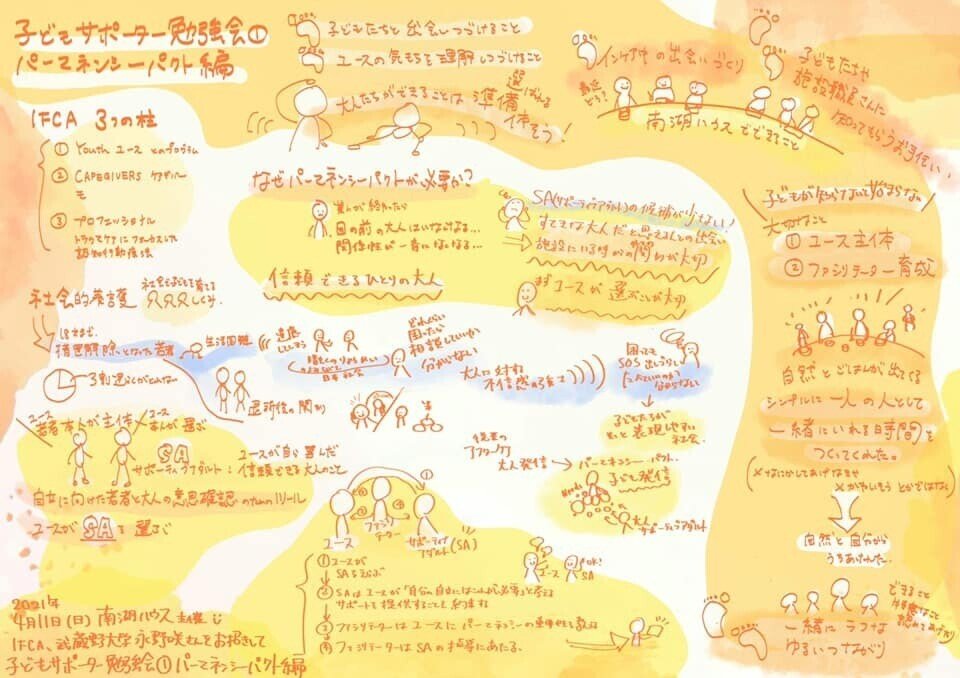 子どもサポーター勉強会①
パーマネンシーパクト編
IFCA 3つの柱
① Youth ユースとのプログラム
② CAREGIVERS ケアギバー
も
③ プロフェッショナル
トラウマケアにフォーカスした
認知行動療法
社会的養護
社会で子どもを育てる
しくみ
18才まで
措置解除となった若者
生活困難
3割
退所後の関わり
子どもたちと出会いつづけること
ユースの気もちを理解しつづけること
大人たちができることは準備体そう
選ばれる
なぜパーマネンシーパクトが必要か?
目の前の大人はいなくなる…
関係性が一番になくなる…
信頼できるひとりの大人
SA(サポーティブアダルト)の候補が少ない!
すてきな大人だと思える人との出会い
施設にいる時からの関わりが大切
まずユースが選ぶが大切
どれくらい
困ったら
相談していいか
分からない
日本社会
大人に対する
不信感の強さ
困っても
SOS出しづらい
子どもたちが
もっと表現しやすい
社会
従来の
アフターケア
大人発信
パーマネンシーパクト
子ども発信
Needs
大人
サポーティブアダルト
ユース
若者本人が主体
ユース
本人が選ぶ
SA
サポーティブアダルト:
ユースが自ら選んだ
信頼できる大人のこと
自立に向けた若者と大人の意思確認のためのツール
ユースがSAを選ぶ
①
②
③
ユース
ファシリテーター
サポーティブアダルト(SA)
① ユースが
SAをえらぶ
② SAはユースが「自分の自立にはこれが必要」と考える
サポートを提供することを約束する
③ ファシリテーターはユースにパーマネンシーの重要性を教える
④ ファシリテーターはSAの指導にあたる。
OK!
ユース
SA
最近どう?
インケア中の出会いづくり
南湖ハウスでできること
子どもたちや
施設職員さんに
知ってもらうお手伝い
子どもが知らないと始まらない
大切なこと
① ユース主体
② ファシリテーター育成
自然とごはんが出てくる
シンプルに一人の人として
一緒にいれる時間を
つくってくれた。
(×なにかしてあげなきゃ
×かわいそうとかではない)
自然と自分から
うちあけれた。
できること
一緒にラフな
ゆるいつながり
2021年
4月11日(日) 南湖ハウス主催
IFCA、武蔵野大学 永野咲さんをお招きして
子どもサポーター勉強会①パーマネンシーパクト編